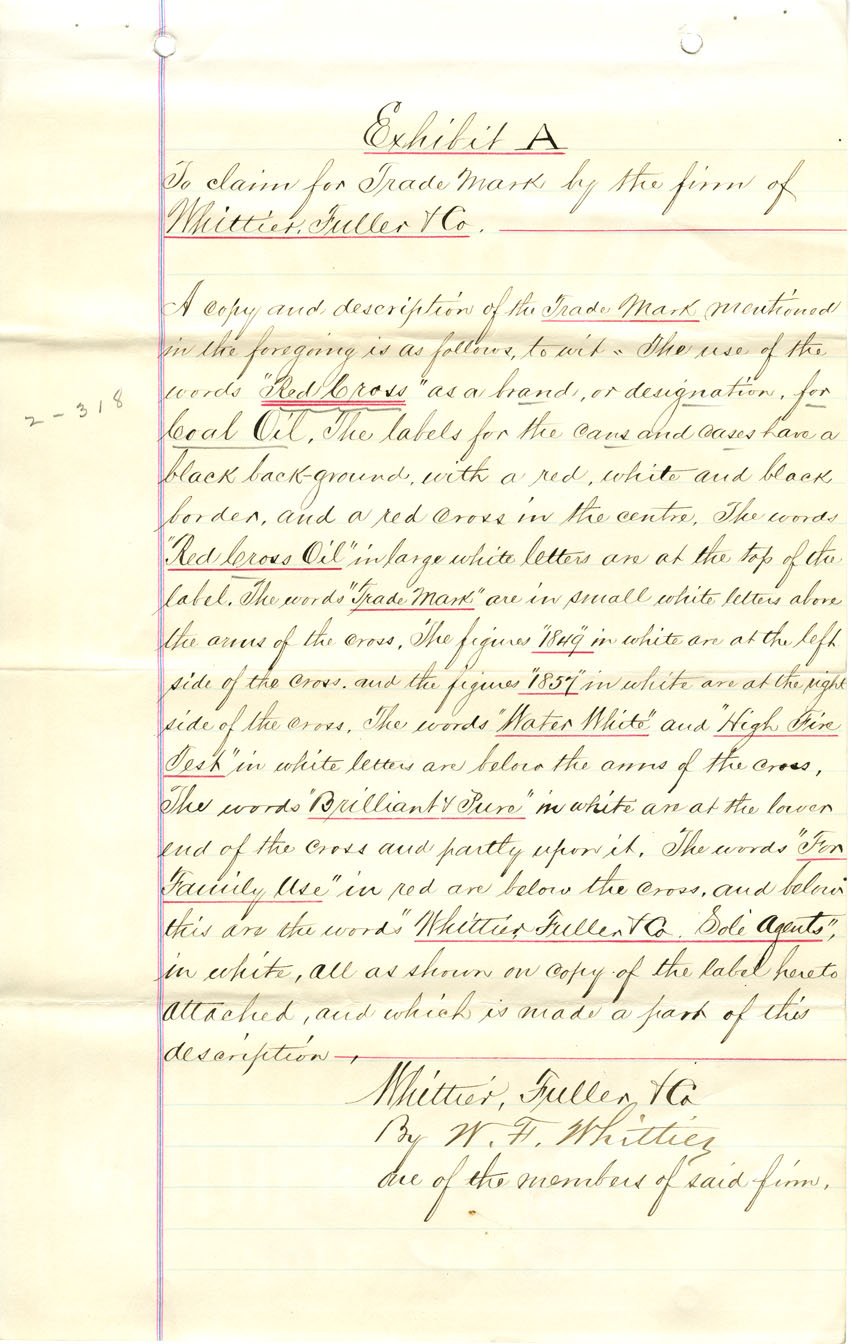 Exhibit A
To claim for Trade Mark by the firm of
Whittier, Fuller & Co.
A copy and description of the Trade Mark mentioned
in the foregoing is as follows, to wit - The use of the
words "Red Cross" as a brand, or designation, for
2-318
Coal Oil. The labels for the cans and cases have a
black back-ground, with a red, white and black
border, and a red cross in the centre. The words
"Red Cross Oil" in large white letters are at the top of the
label. The words "Trade Mark" are in small white letters above
the arms of the cross. The figures "1849" in white are at the left
side of the cross. and the figures "1857" in white are at the right
side of the cross. The words "Water White" and "High Fire
Test" in white letters are below the arms of the cross.
The words "Brilliant & Pure" in white are at the lower
end of the cross and partly upon it. The words "For
Family Use" in red are below the cross, and below
this are the words "Whittier, Fuller & Co. Sole Agents",
in white, all as shown on copy of the label hereto
attached, and which is made a part of this
description.
Whittier, Fuller & Co
By W. F. Whittier
one of the members of said firm.